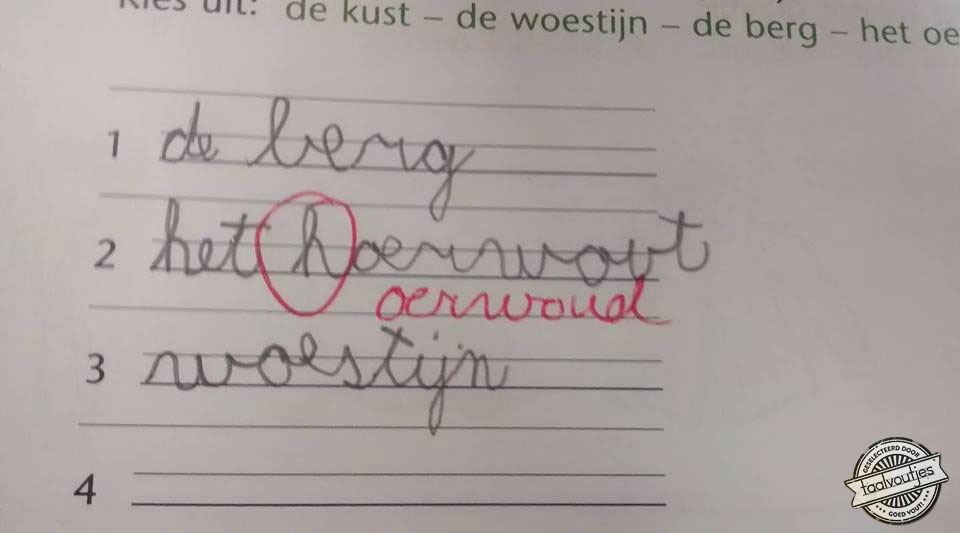 Kies uit: de kust – de woestijn – de berg – het oe
1 de berg
2 het hoerwout
oerwoud
3 woestijn
4
GESELECTEERD DOOR
taalvoutjes
GOED VOUT!